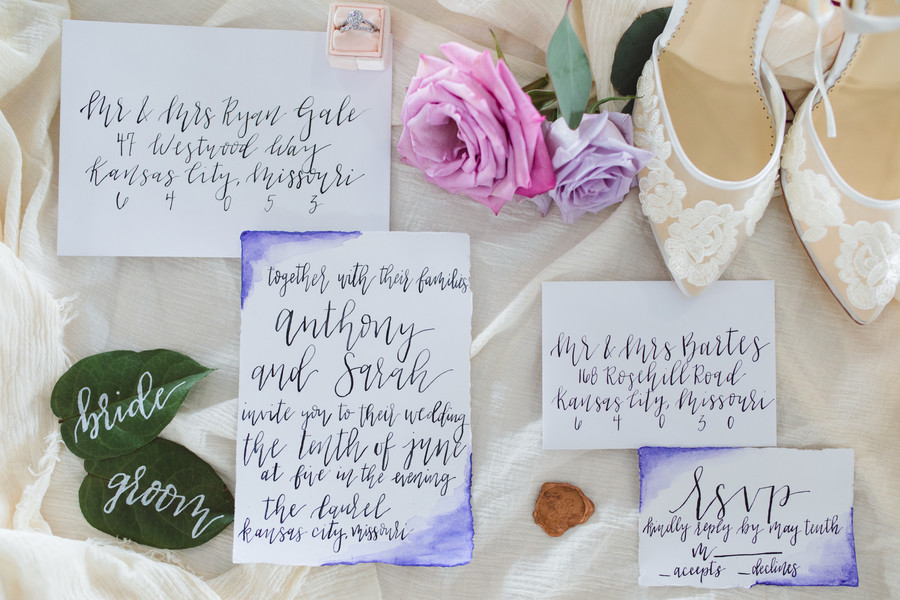 Mr & Mrs Ryan Gale
47 Westwood Way
Kansas City, Missouri
6 4 0 5 3
together with their families
anthony
and Sarah
invite you to their wedding
the tenth of june
at five in the evening
the Laurel
kansas city, missouri
bride
groom
Mr & Mrs Bartes
168 Rosehill Road
Kansas City, Missouri
6 4 0 3 0
rsvp
kindly reply by may tenth
m
_accepts _declines